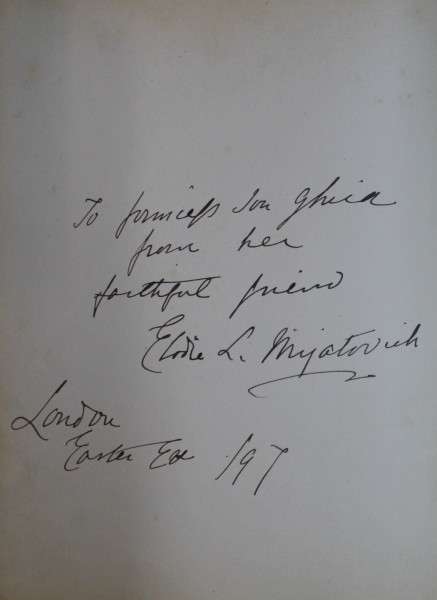 To princess Ion Ghica
from her
faithful friend
Elodie L. Mijatovich
London
Easter Eve /97